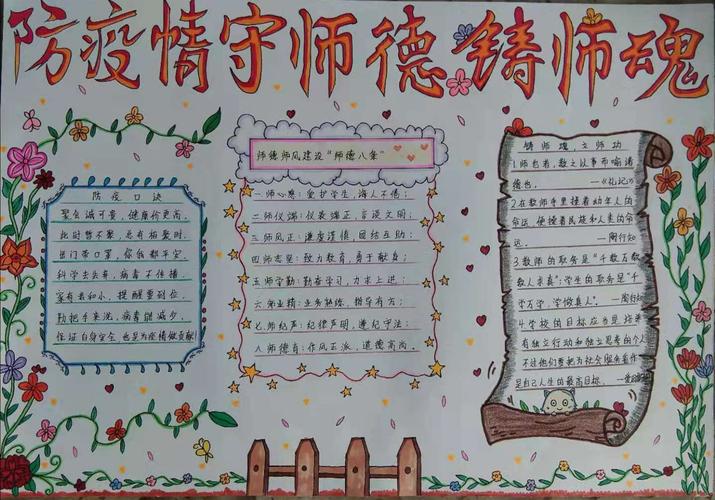 防疫情守师德铸师魂
防疫口诀
聚会诚可贵，健康价更高，
此时暂不聚，总有相聚时，
出门带口罩，你我都平安，
科学去丢弃，病毒不传播，
家有老和小，提醒要到位，
勤把手来洗，病毒能减少，
保证自身安全 也是为疫情做贡献
师德师风建设“师德八条”
一.师心慈：爱护学生，诲人不倦；
二.师仪端：仪表端正，言谈文明；
三.师风正：谦虚谨慎，团结互助；
四.师志坚：致力教育，勇于献身；
五.师学勤：勤奋学习，力求上进；
六.师业精：业务熟练，指导有方；
七.师纪严：纪律严明，遵纪守法；
八.师德高：作风正派，道德高尚。
铸师魂，立师功
1.师也者，教之以事而喻诸
德也。——《礼记》
2.在教师手里操着幼年人的
命运，便操着民族和人类的命
运。——陶行知
3.教师的职务是“千教万教
教人求真”；学生的职务是“千
学万学，学做真人”。—陶行知
4.学校的目标应当是培养
有独立行动和独立思考的个人
不过他们要把为社会服务看作
是自己人生的最高目标。